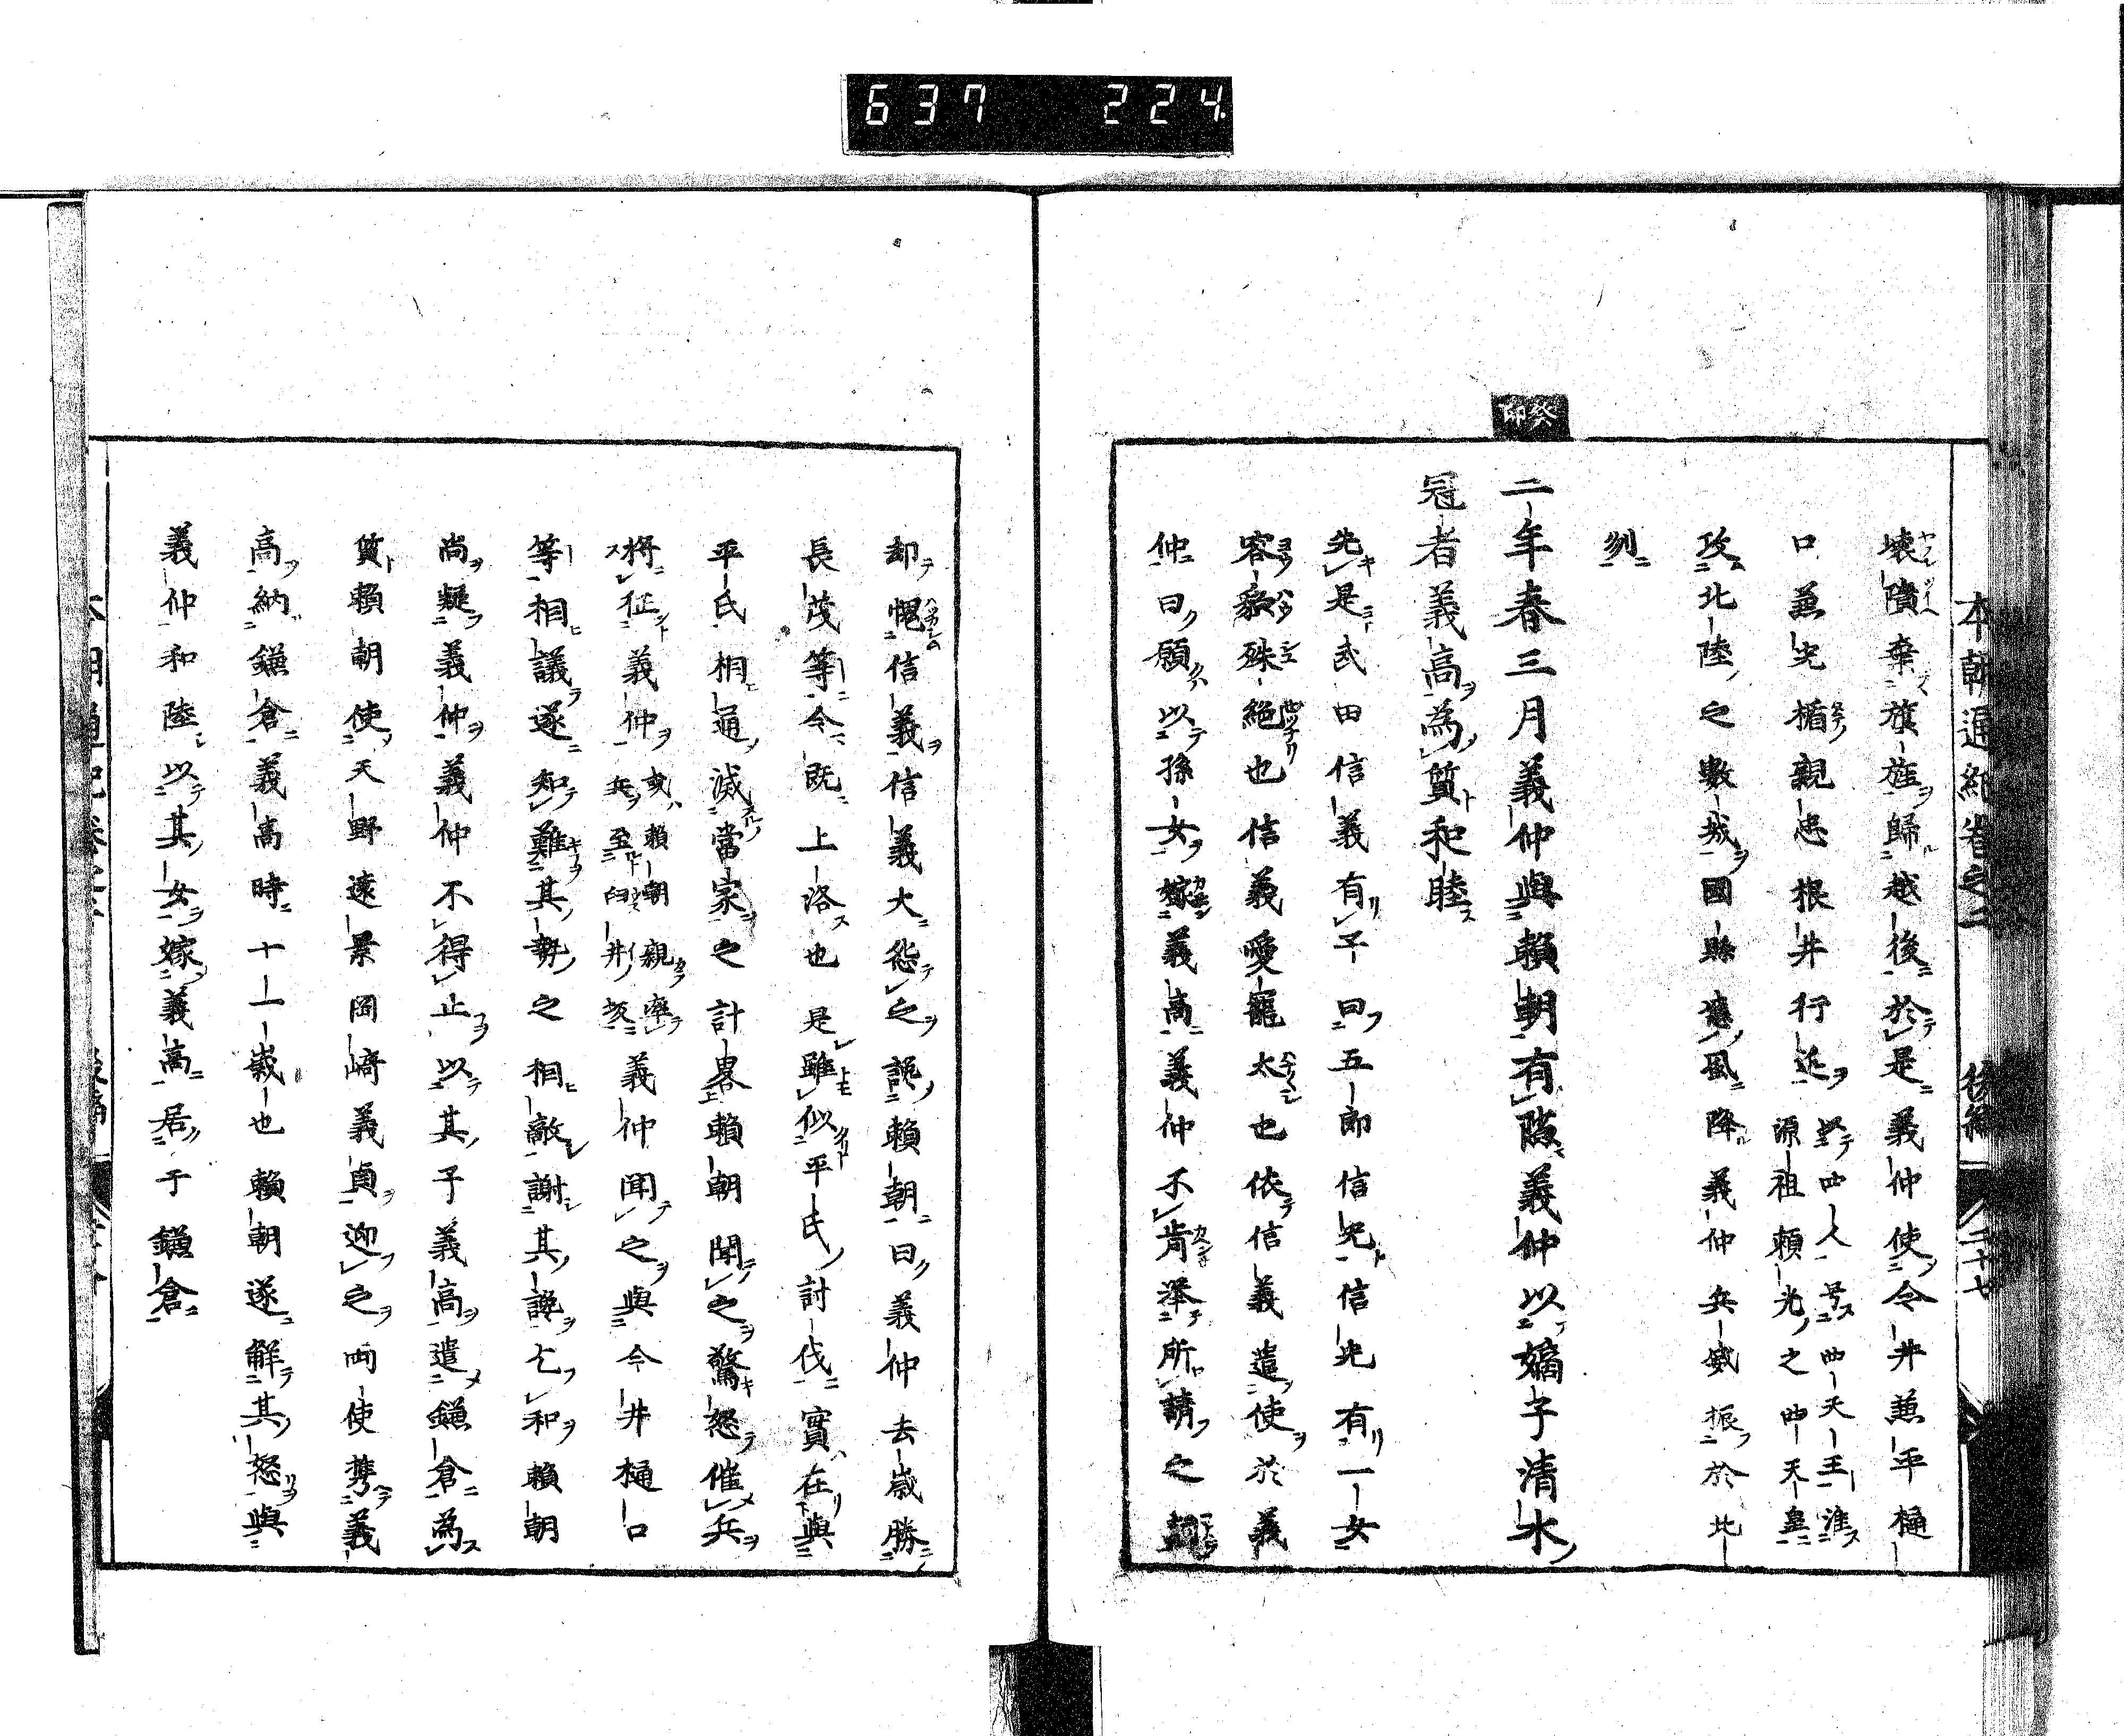 637 224
本朝通紀
後編
二十七
壊隤棄旗旌歸越後於是義仲使令井兼平樋
口兼光楯親忠根井行近以四人号四天王準源祖頼光之四天皇
攻北陸之數城國縣望風降義仲兵威振於北
列
癸卯
二年春三月義仲與頼朝有隙義仲以嫡子清水
冠者義高為質和睦
先是武田信義有子曰五郎信光信光有一女
容貌殊絶也信義愛寵太也依信義遣使於義
仲曰願以孫女嫁義高義仲不肯举所請之
却愧信義信義大怨之讒頼朝曰義仲去歳勝
長茂等今既上洛也是雖似平氏討伐實在與
平氏相通滅當家之計畧頼朝聞之驚怒催兵
将征義仲或頼朝親率兵至臼井坂義仲聞之與今井樋口
等相議遂知難其勢之相敵謝其讒乞和頼朝
尚疑義仲義仲不得止以其子義高遣鎌倉為
質頼朝使天野遠景岡﨑義貞迎之両使携義
高納鎌倉義高時十一歳也頼朝遂解其怒與
義仲和陸以其女嫁義高居于鎌倉